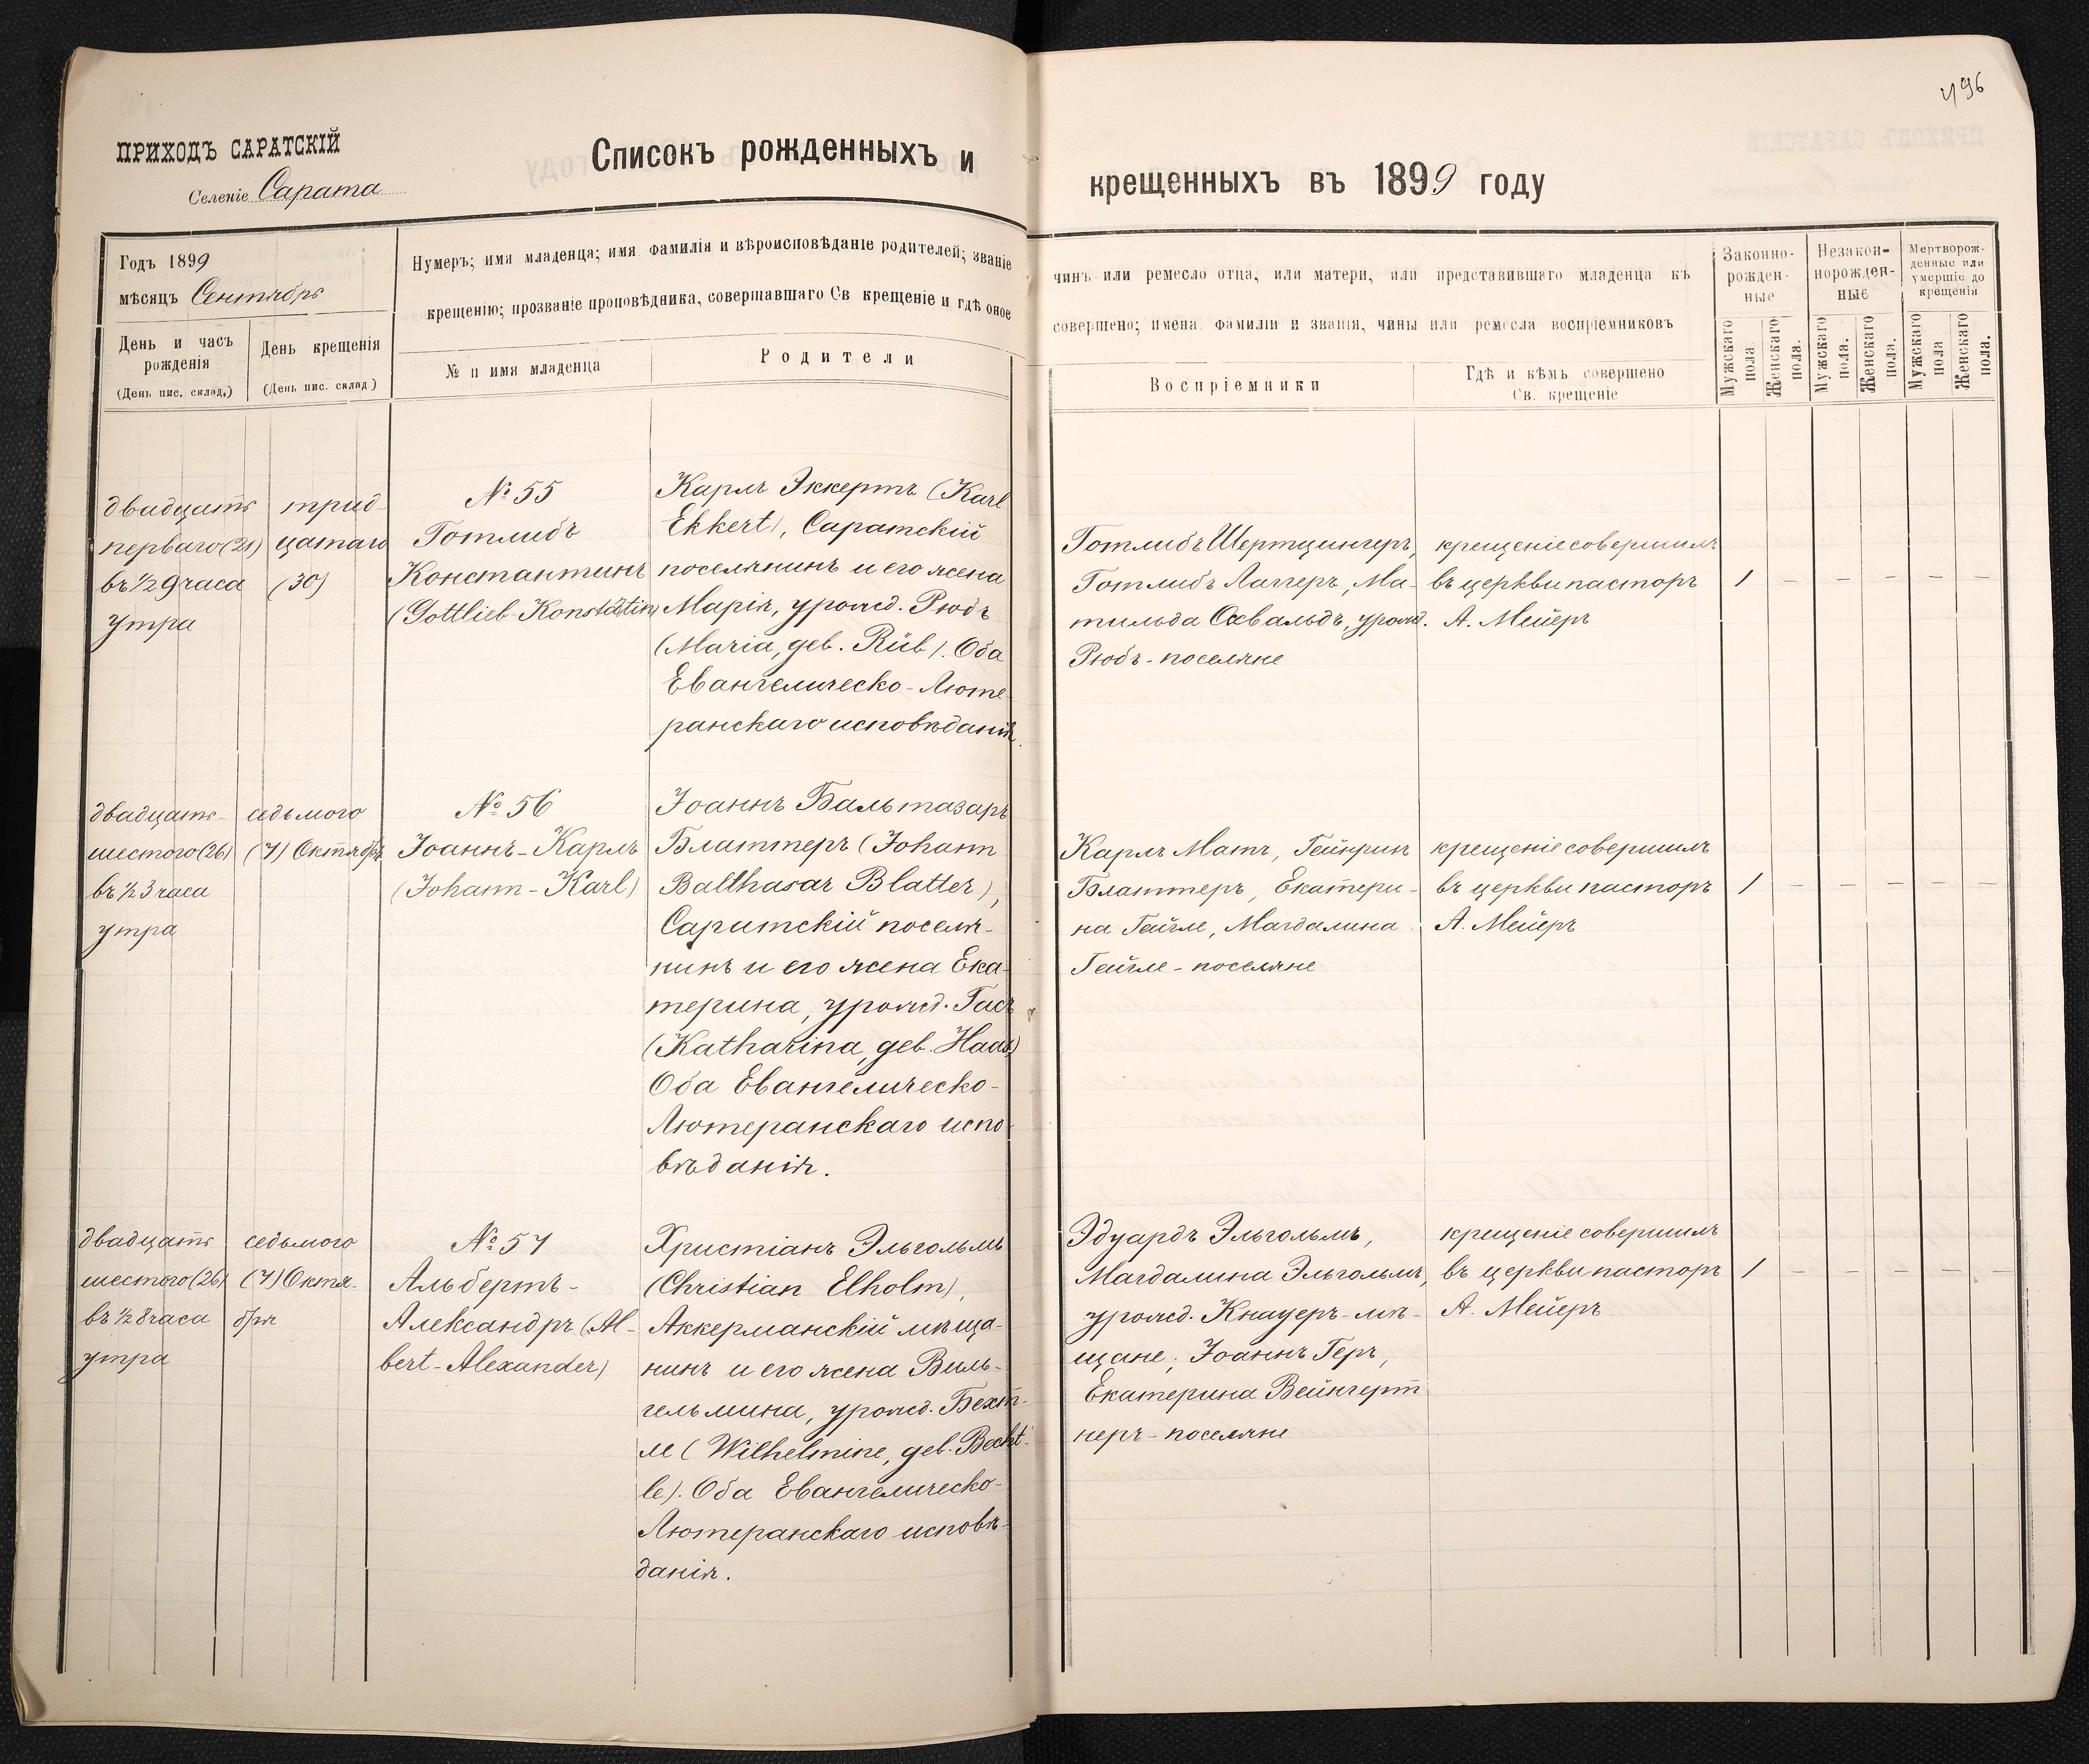 496
ПРИХОДЪ САРАТСКІЙ
Селеніе Сарата
Списокъ рожденныхъ и
крещенныхъ въ 1899 году
Годъ 1899
мѣсяцъ Сентябрь
День и часъ
рожденія
(День пис. склад.)
День крещенія
(День пис. склад)
Нумеръ; имя младенца; имя фамилія и вѣроисповѣданіе родителей; званіе
крещенію; прозваніе проповѣдника, совершавшаго Св крещеніе и гдѣ оное
№ и имя младенца
Родители
чинъ или ремесло отца, или матери, или представившаго младенца къ
совершено; имена фамиліи и званія, чины или ремесла воспріемниковъ
Воспріемники
Гдѣ и кѣмъ совершено
Св. крещеніе
Законно-
рожден-
ные
Незакон-
норожден-
ные
Мертворож-
денные или
умершіе до
крещенія
Мужскаго
пола
Женскаго
пола.
Мужскаго
пола.
Женскаго
пола.
Мужскаго
пола
Женскаго
пола.
двадцать
перваго (21)
въ ½ 9 часа
утра
трид-
цатаго
(30)
№ 55
Готлибъ
Константинъ
(Gottlieb-Konstantin)
Карлъ Эккертъ (Karl
Ekkert), Саратскій
поселянинъ и его жена
Марія, урожд. Рюбъ
(Maria, geb. Rüb). Оба
Евангелическо-Люте-
ранскаго исповѣданія.
Готлибъ Шертцингеръ,
Готлибъ Лаггеръ, Ма-
тильда Освальдъ, урожд.
Рюбъ - поселяне
крещеніе совершилъ
въ церкви пасторъ
А. Мейеръ
1 - - - - -
двадцать-
шестого (26)
въ ½ 3 часа
утра
седьмого
(7) Октября
№ 56
Іоаннъ-Карлъ
(Johann-Karl)
Іоаннъ Бальтазаръ
Блаттеръ (Johann
Balthasar Blatter),
Саратскій поселя-
нинъ и его жена Ека-
терина, урожд. Гасъ
(Katharina, geb. Haas)
Оба Евангелическо-
Лютеранскаго испо-
вѣданія.
Карлъ Матъ, Гейнрихъ
Блаттеръ, Екатери-
на Гейгле, Магдалина
Гейгле - поселяне
крещеніе совершилъ
въ церкви пасторъ
А. Мейеръ
1 - - - - -
двадцать
шестого (26)
въ ½ 8 часа
утра
седьмого
(7) Октя-
бря
№ 57
Альбертъ-
Александръ (Al-
bert-Alexander)
Христіанъ Эльгольмъ
(Christian Elholm),
Аккерманскій мѣща-
нинъ и его жена Виль-
гельмина, урожд. Бехт-
ле (Wilhelmine, geb. Becht-
le). Оба Евангелическо-
Лютеранскаго исповѣ-
данія.
Эдуардъ Эльгольмъ,
Магдалина Эльгольмъ,
урожд. Кнауеръ - мѣ-
щане; Іоаннъ Геръ,
Екатерина Вейнгерт
неръ - поселяне
крещеніе совершилъ
въ церкви пасторъ
А. Мейеръ
1 - - - - -